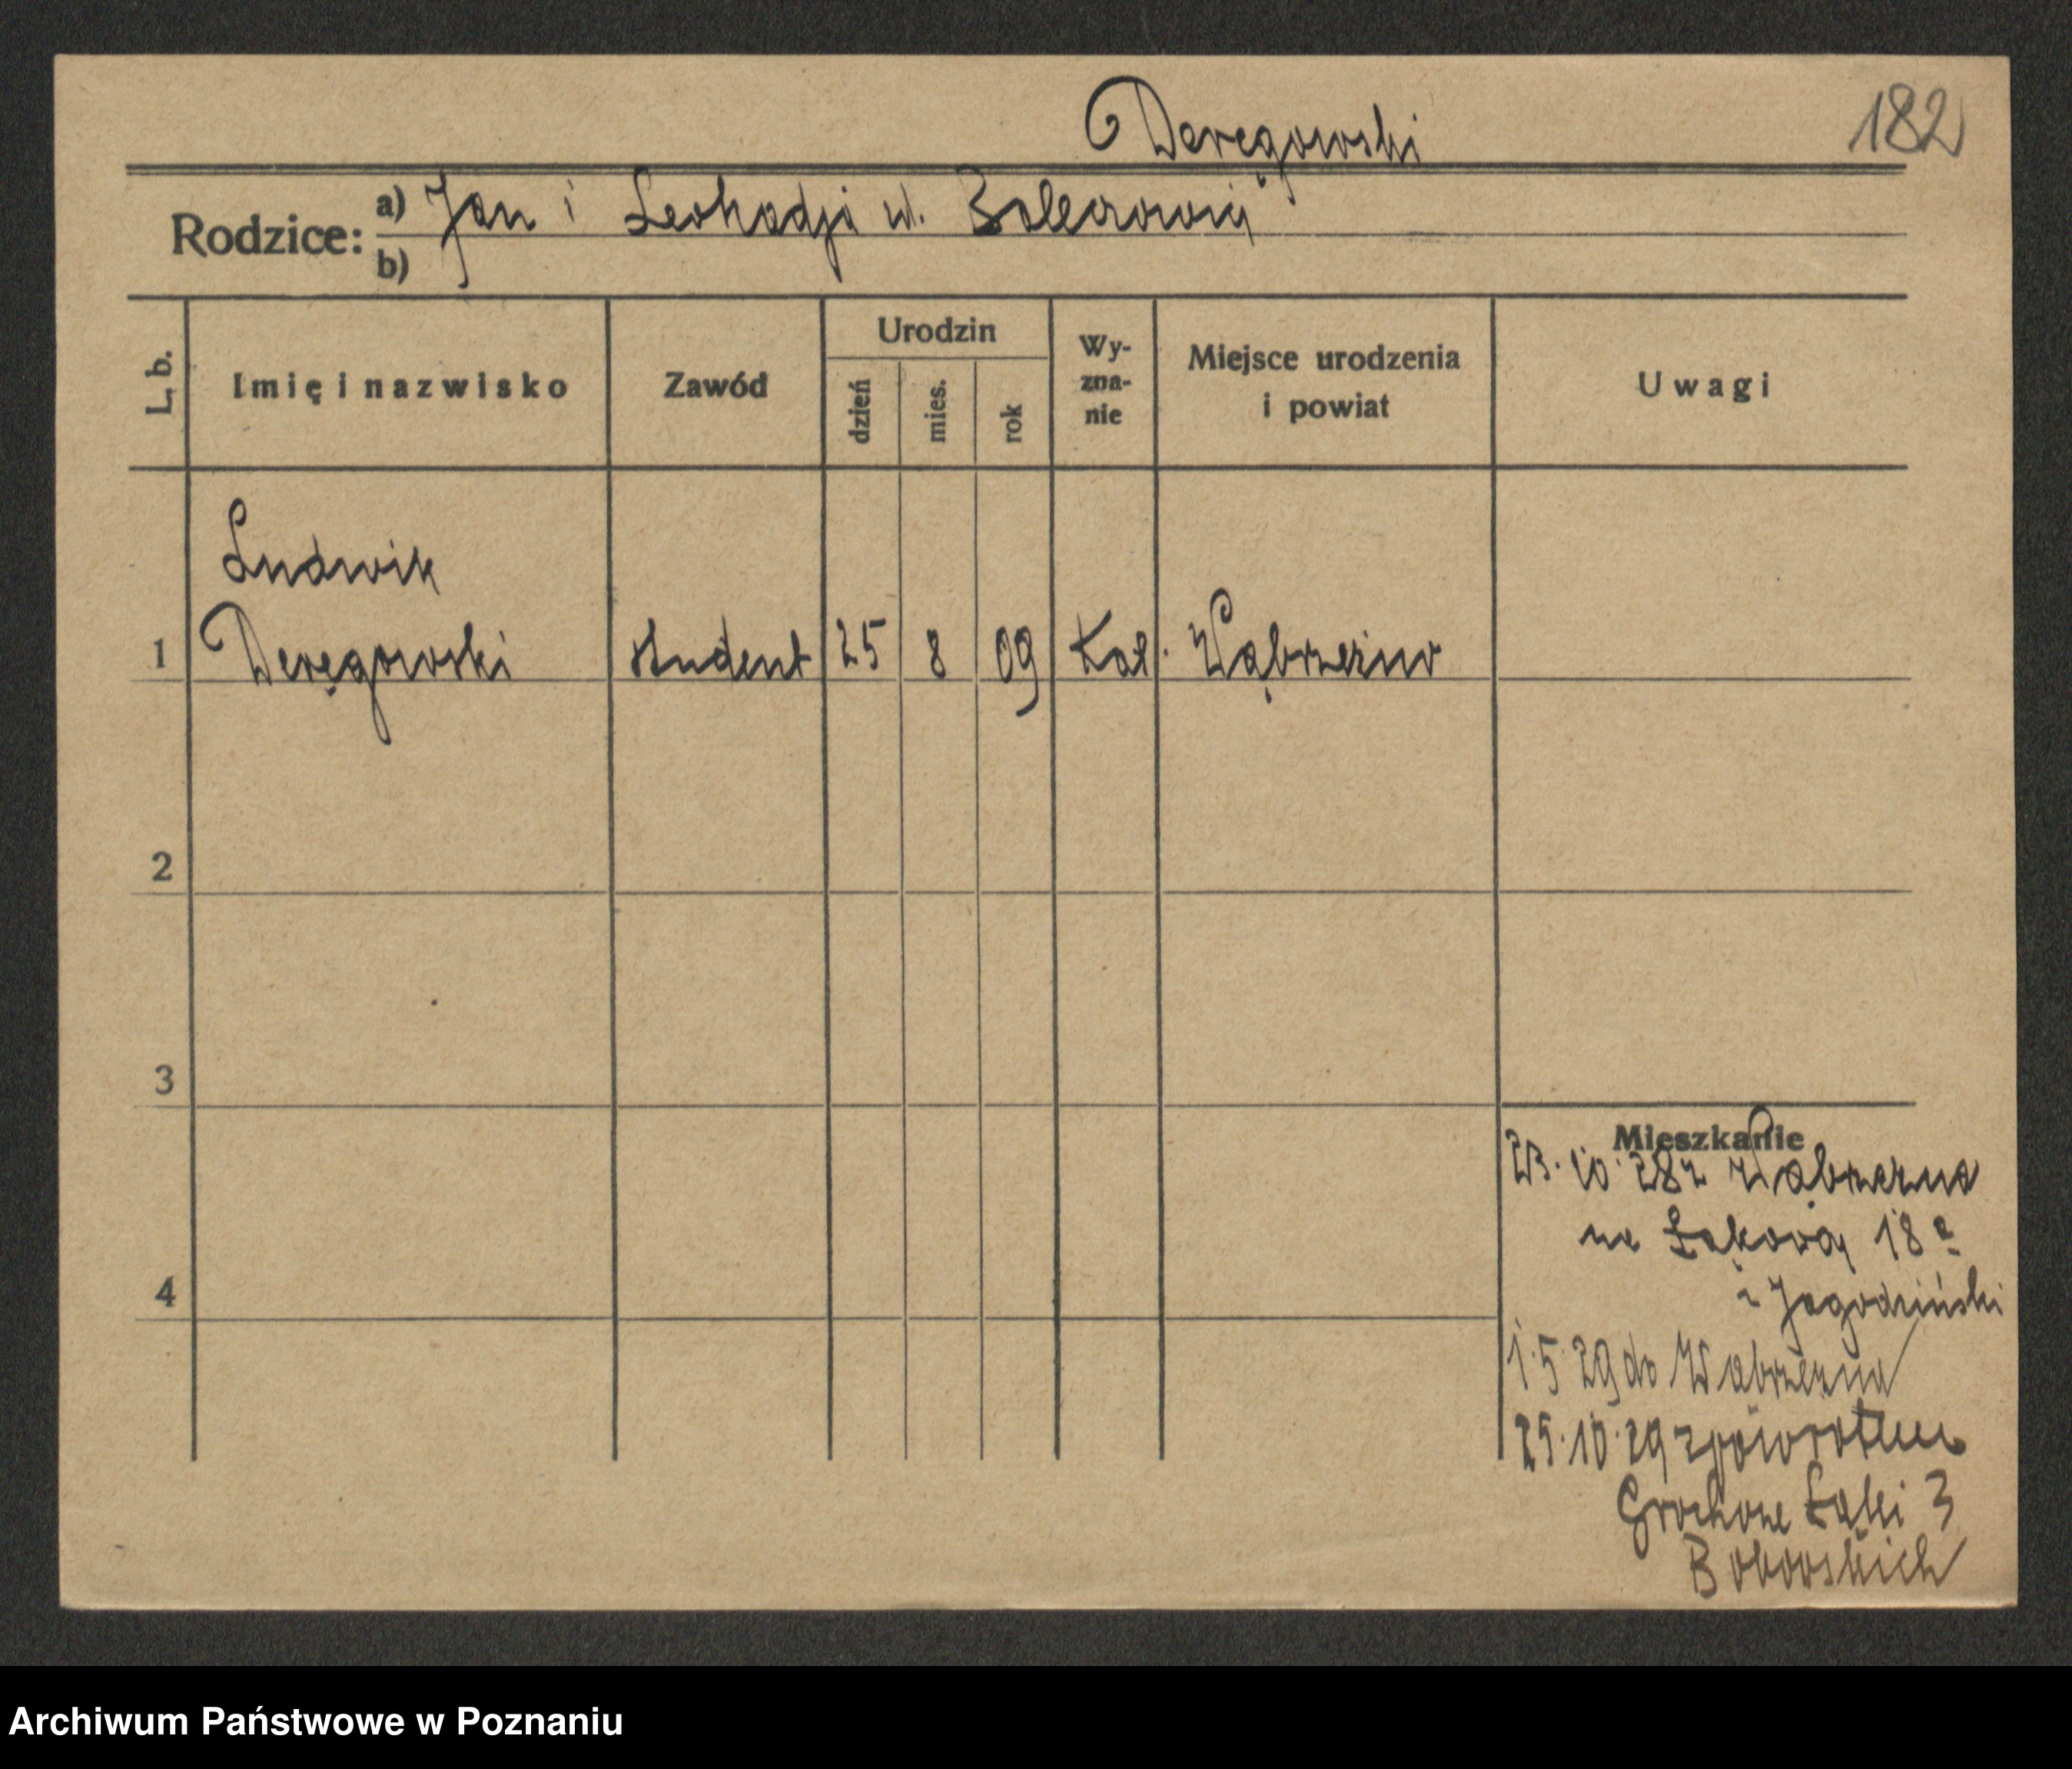 Deręgowski
182
Rodzice: a) Jan i Leokadja
b)
L. b.
Imię i nazwisko
Zawód
Urodzin
dzień
mies.
rok
Wy-
zna-
nie
Miejsce urodzenia
i powiat
Uwagi
Ludwik
1 Deręgowski student 25 8 09 Kat. Wąbrzeźno
2
3
4
Mieszkanie
23.10.28 z Wąbrzezna
na Łąkową 18a
Jagodziński
1.5.29 do Wąbrzezna
25.10.29 zpowrotem
Grochowe Łąki 3
Archiwum Państwowe w Poznaniu